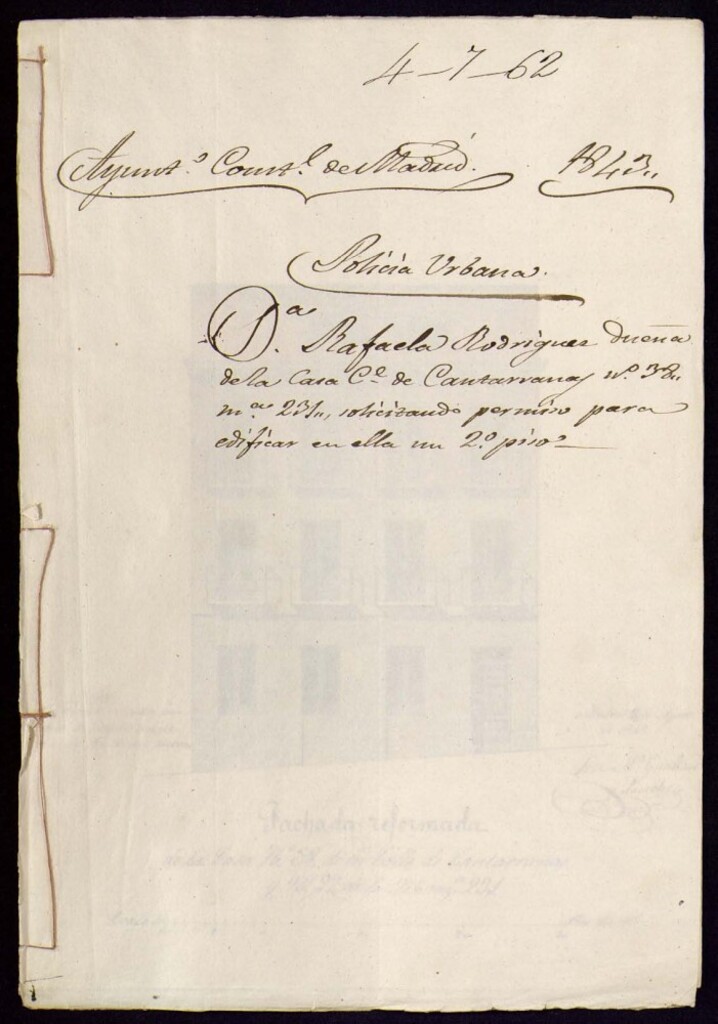 4-7-62
Ayunt.º Const.l de Madrid. 1843,,
Policia Urbana.
D.ª Rafaela Rodriguez dueña
de la Casa C.e de Cantarranas n.º 38,,
m.na 231,, solicitando permiso para
edificar en ella un 2.º piso
Fachada reformada